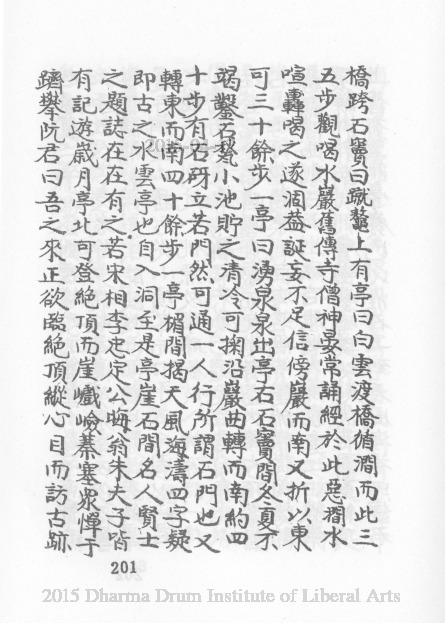 橋跨石竇曰蹴鼇上有亭曰白雲渡橋循澗而北三
五步觀喝水巖舊傳寺僧神晏常誦經於此惡澗水
喧轟喝之逐涸蓋誕妄不足信傍巖而南又折以東
可三十餘步一亭曰湧泉泉出亭右石竇間冬夏不
竭鑿石甃小池貯之清冷可掬沿巖曲轉而南約四
十步有石砑立若門然可通一人行所謂石門也又
轉東而南四十餘步一亭楣間揭天風海濤四字疑
即古之水雲亭也自入洞至是亭崖石間名人賢士
之題誌在在有之若宋相李忠定公晦翁朱夫子皆
有記遊歲月亭北可登絕頂而崖巇嶮蓁塞眾憚于
躋攀阮君曰吾之來正欲臨絕頂縱心目而訪古跡
201
2015 Dharma Drum Institute of Liberal Arts